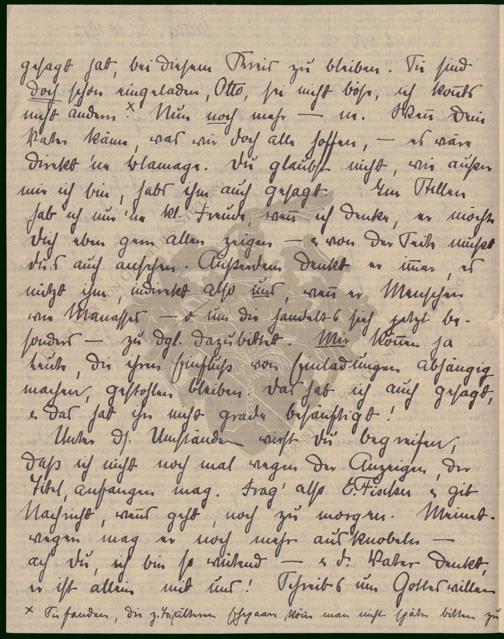 gesagt hat, bei diesem Kreis zu bleiben. Sie sind
doch schon eingeladen, Otto, sei nicht böse, ich konnts
nicht ändern! x Nun noch mehr — ne. Wenn Dein
Vater käme, was wir doch alle hoffen, — es wäre
direkt 'ne Blamage. Du glaubst nicht, wie außer
mir ich bin, habs ihm auch gesagt. Im Stillen
hab ich nur 'ne kl. Freude, wenn ich denke, er möchte
Dich eben gern allen zeigen — von der Seite mußt
du's auch ansehen. Außerdem denkt er immer, es
nützt ihm, indirekt also uns, wenn er Menschen
wie Manasses — um die handelt's sich jetzt be-
sonders — zu dgl. dazubittet. Mir können ja
Leute, die ihren Einfluß von Einladungen abhängig
machen, gestohlen bleiben. Das hab ich auch gesagt,
das hat ihn nicht grade besänftigt!
Unter ds. Umständen wirst Du begreifen,
daß ich nicht noch mal wegen der Anzeigen, der
Titel, anfangen mag. Frag' also E. Fischer gib
Nachricht, wenns geht, noch zu morgen. Meinet-
wegen mag er noch mehr ausknobeln —
ach Du, ich bin so wütend — d. Vater denkt,
er ist allein mit uns! Schreibs um Gottes willen
x Sie fanden, die Ehepaare könn man nicht später bitten zu